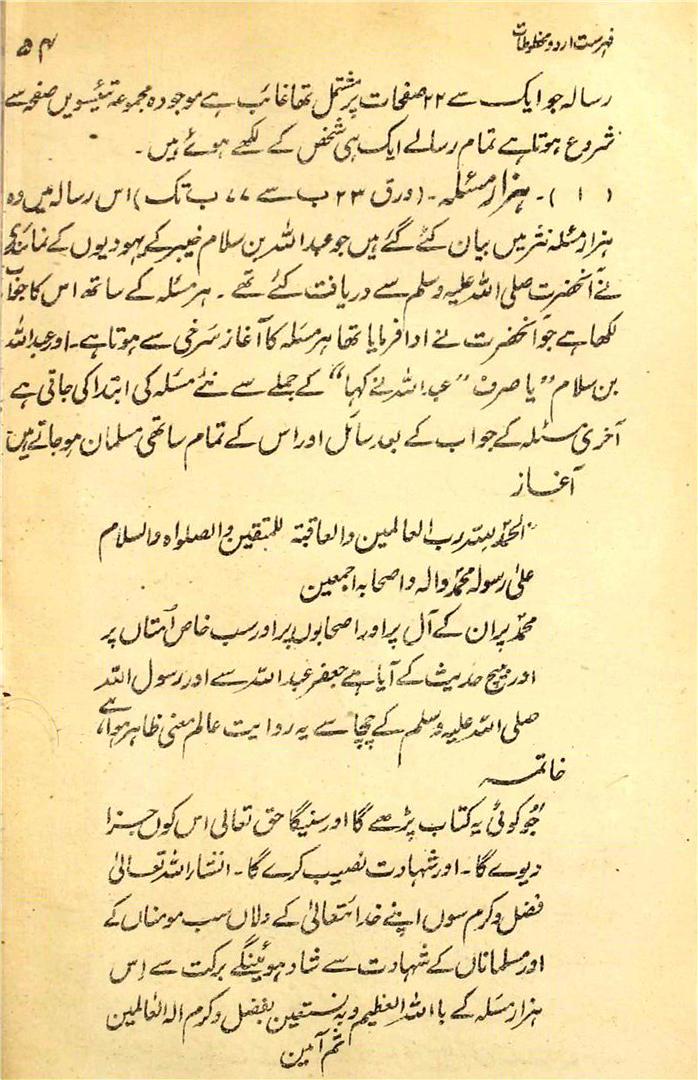 فہرست اردو مخطوطات
۵۴
رسالہ جو ایک سے ۲۲ صفحات پر مشتمل تھا غائب ہے موجودہ مجموعہ تیئسویں صفحہ سے
شروع ہوتا ہے تمام رسالے ایک ہی شخص کے لکھے ہوئے ہیں ۔
( ۱ ) ۔ ہزار مسئلہ ۔ (ورق ۲۳ ب سے ۷۷ ب تک) اس رسالہ میں وہ
ہزار مسئلہ نثر میں بیان کئے گئے ہیں جو عبداللہ بن سلام خیبر کے یہودیوں کے نمائندہ
نے آنحضرت صلی اللہ علیہ وسلم سے دریافت کئے تھے ۔ ہر مسئلہ کے ساتھ اس کا جواب
لکھا ہے جو آنحضرت نے ادا فرمایا تھا ہر مسئلہ کا آغاز سرخی سے ہوتا ہے ۔ اور عبداللہ
بن سلام” یا صرف ”عبداللہ نے کہا“ کے جملے سے نئے مسئلہ کی ابتدا کی جاتی ہے
آخری مسئلہ کے جواب کے بعد سائل اور اس کے تمام ساتھی مسلمان ہو جاتے ہیں
آغاز
”الحمد للہ رب العالمین والعاقبۃ للمتقین والصلواہ والسلام
علی رسولہ محمد والہ واصحابہ اجمعین
محمد پر ان کے آل پر اور اصحابوں پر اور سب خاص امتاں پر
اور بیچ حدیث کے آیا ہے جعفر عبداللہ سے اور رسول اللہ
صلی اللہ علیہ وسلم کے چچا سے یہ روایت عالم معنی ظاہر ہوا ہے
خاتمہ
”جو کوئی یہ کتاب پڑھے گا اور سنیگا حق تعالی اس کوں جزا
دیوے گا ۔ اور شہادت نصیب کرے گا ۔ انشاء اللہ تعالیٰ
فضل و کرم سوں اپنے خدا تعالیٰ کے دلاں سب مومناں کے
اور مسلماناں کے شہادت سے شاد ہوئینگے برکت سے اس
ہزار مسئلہ کے با اللہ العظیم وبہ نستعین بفضل و کرم الہ العالمین
تم آمین